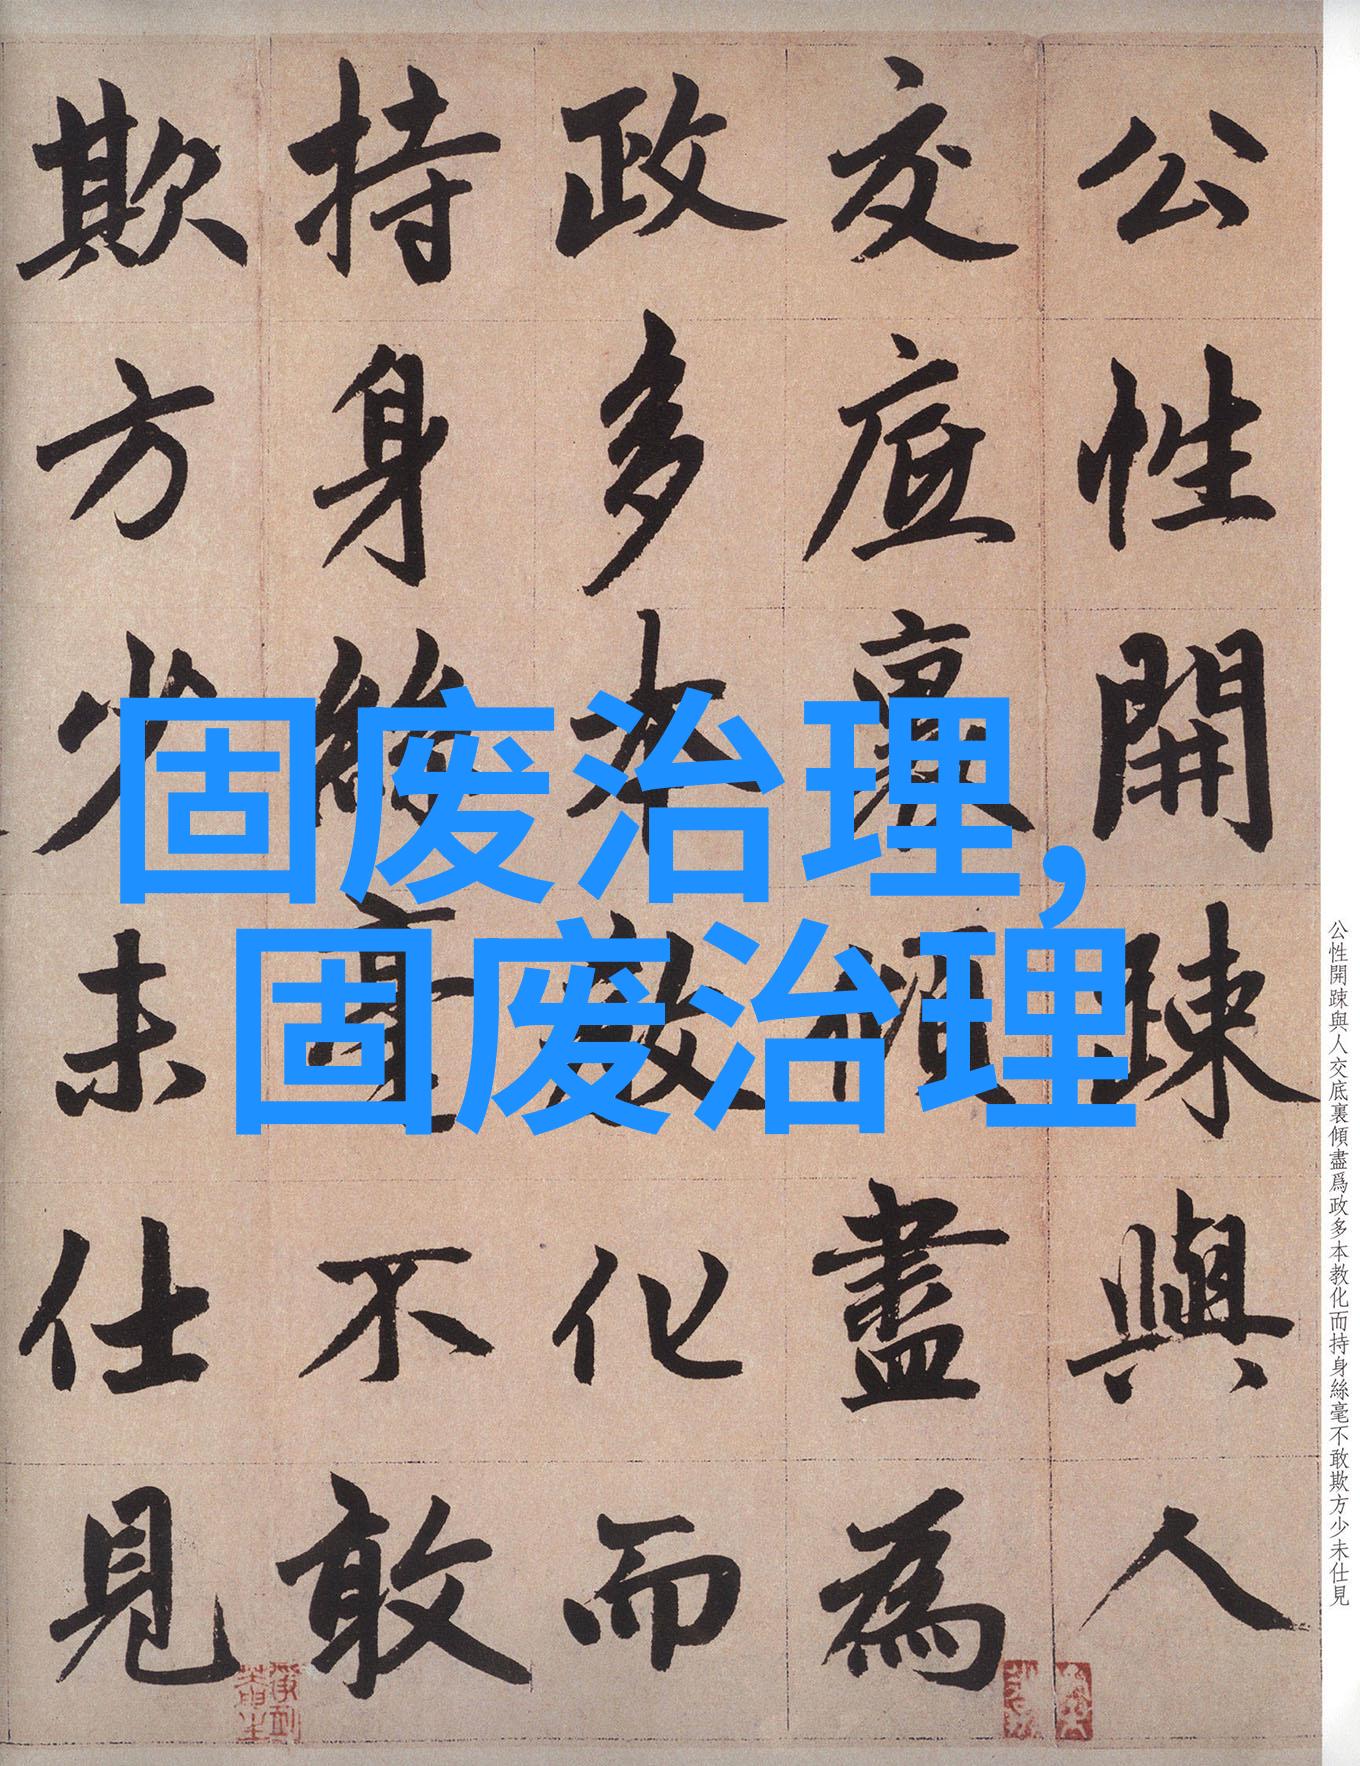 公性開踈與人
交底裏傾盡為
政多本教化而
持身絲毫不敢
欺方少未仕見
固废治理，
固废治理
公性開踈與人交底裏傾盡爲政多本教化而持身絲毫不敢欺方少未仕見